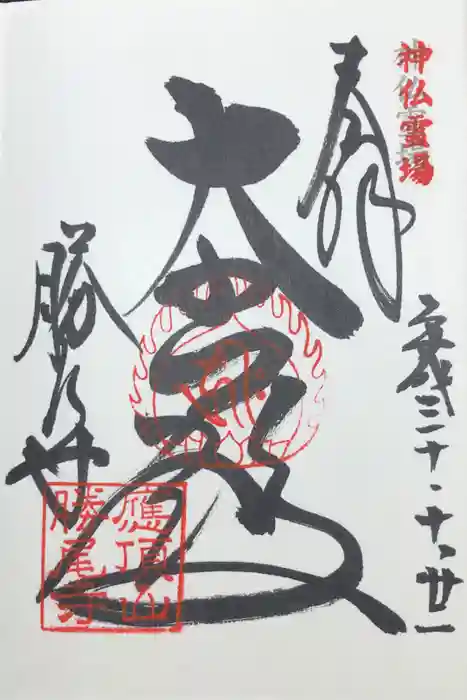 神仏霊場
奉拝
平成三十・十・廿一
大悲殿
勝尾寺
應頂山
勝尾寺